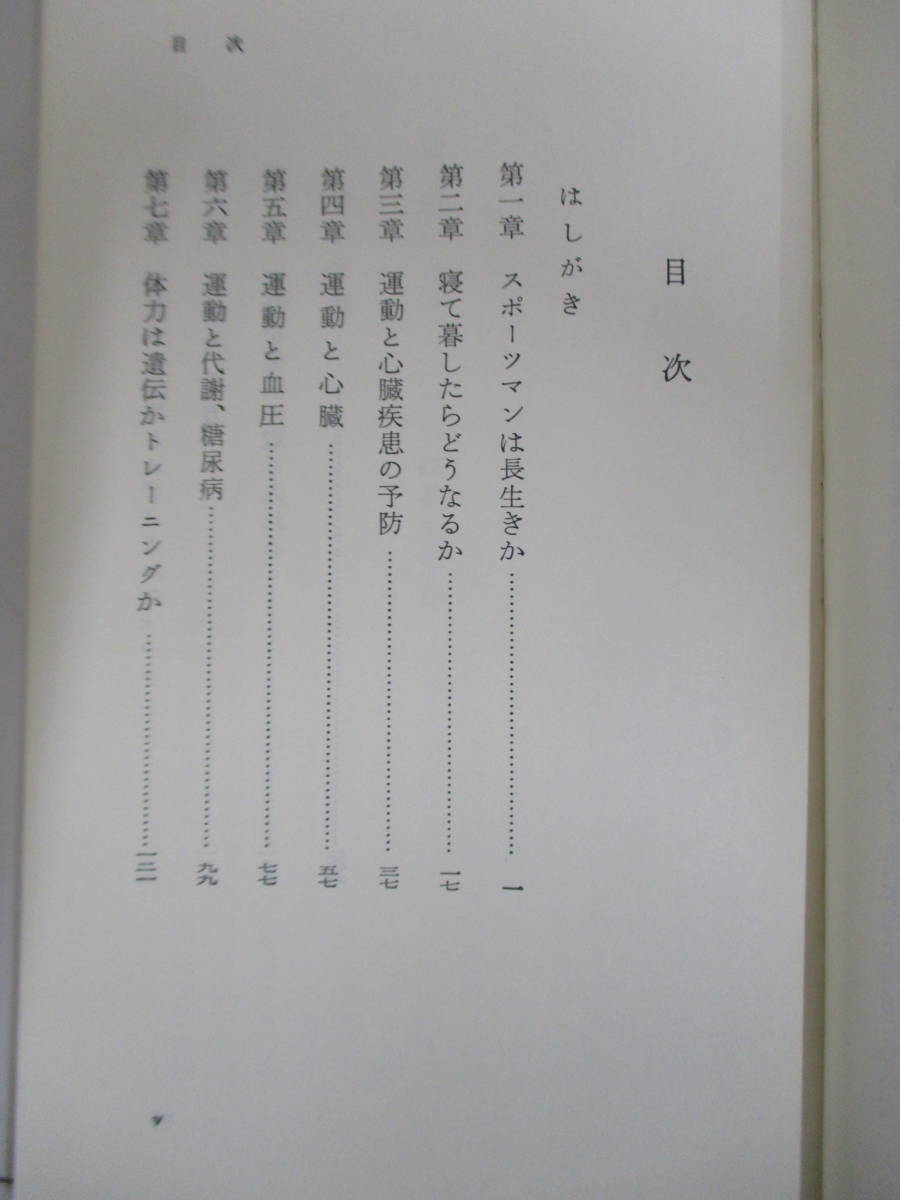 目次
目次
はしがき
第一章 スポーツマンは長生きか…………………………一
第二章 寝て暮したらどうなるか…………………………一七
第三章 運動と心臓疾患の予防…………………………三七
第四章 運動と心臓…………………………五七
第五章 運動と血圧…………………………七七
第六章 運動と代謝、糖尿病…………………………九九
第七章 体力は遺伝かトレーニングか…………………………一二一